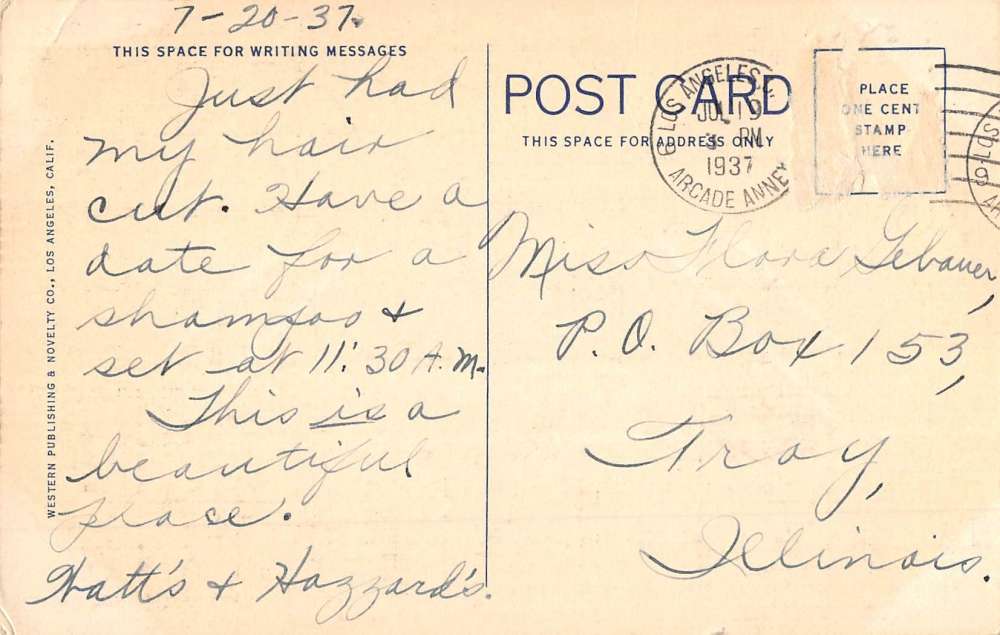 7-20-37.
THIS SPACE FOR WRITING MESSAGES
Just had
my hair
cut. Have a
date for a
shampoo &
set at 11:30 A.M.
This is a
beautiful
place.
Watt's & Hazzard's.
WESTERN PUBLISHING & NOVELTY CO., LOS ANGELES, CALIF.
POST CARD
THIS SPACE FOR ADDRESS ONLY
LOS ANGELES
JUL 19
PM
1937
ARCADE ANNEX
PLACE
ONE CENT
STAMP
HERE
Miss Flora Gebauer,
P.O. Box 153,
Troy,
Illinois.